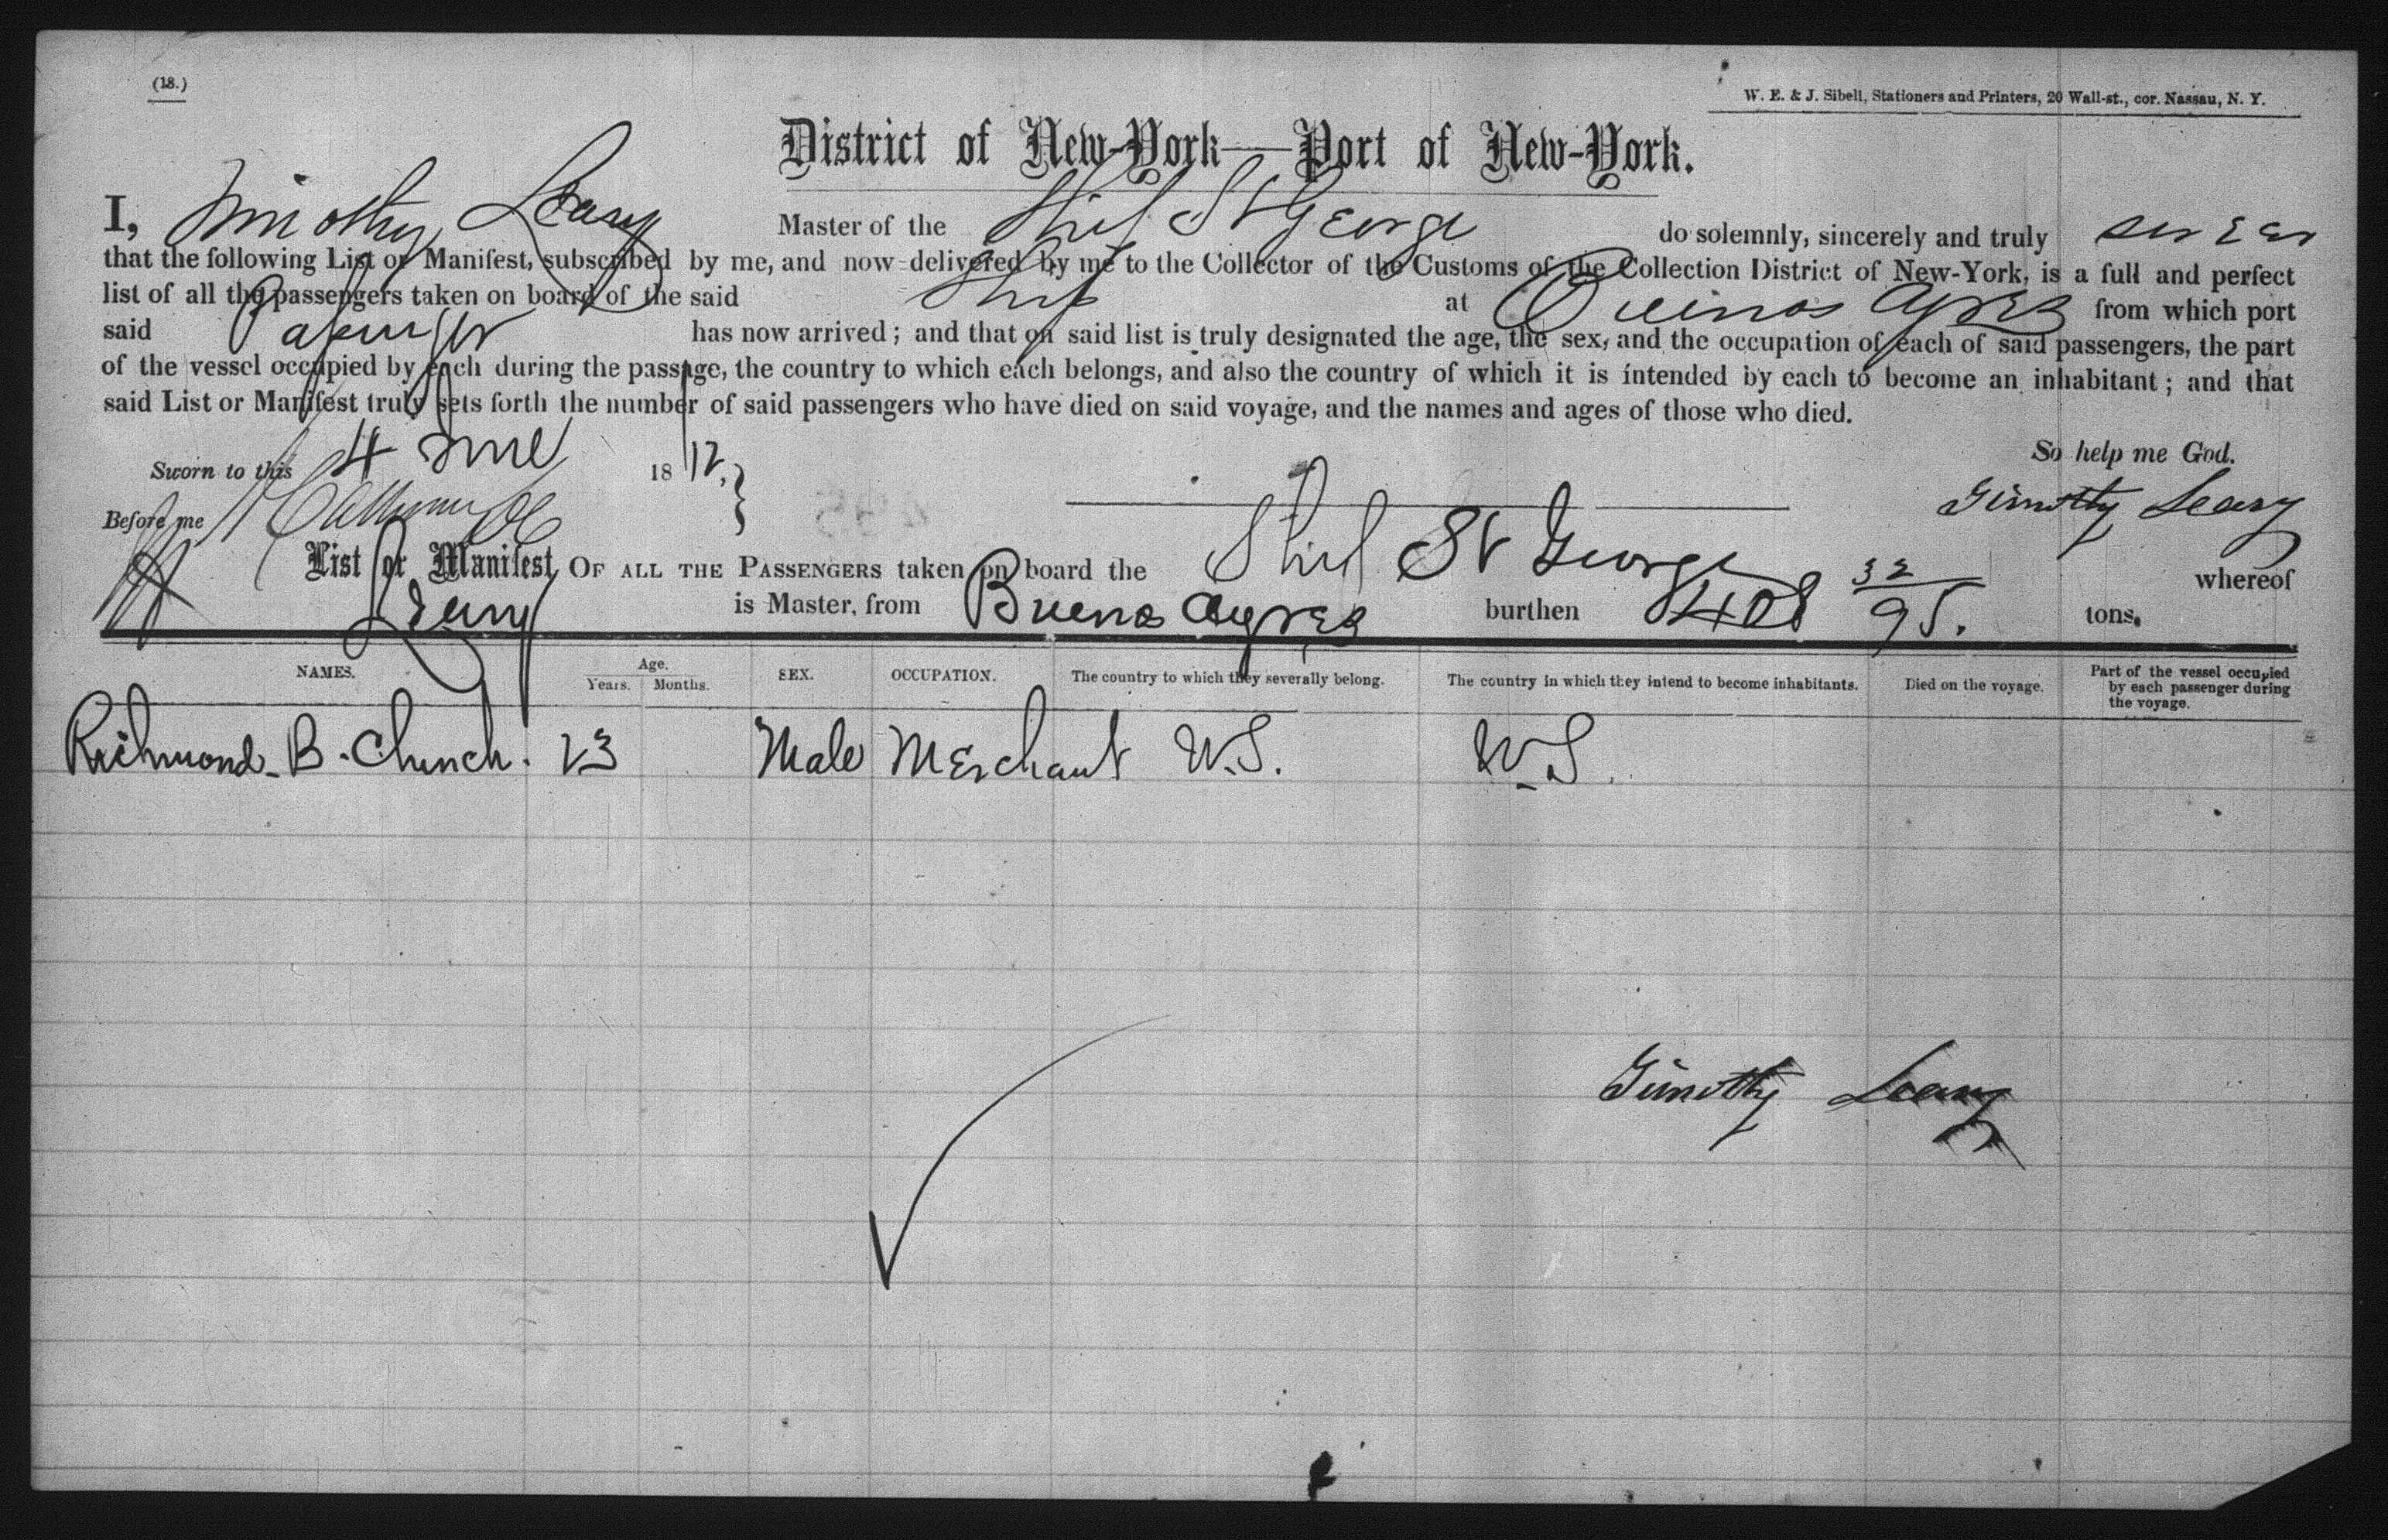 (18.)
W. E. & J. Sibell, Stationers and Printers, 20 Wall-st., cor. Nassau, N. Y.
District of New-York—Port of New-York.
I, Timothy Leary Master of the Ship St George do solemnly, sincerely and truly swear
that the following List or Manifest, subscribed by me, and now delivered by me to the Collector of the Customs of the Collection District of New-York, is a full and perfect
list of all the passengers taken on board of the said Ship at Buenos Ayres from which port
said has now arrived; and that on said list is truly designated the age, the sex, and the occupation of each of said passengers, the part
of the vessel occupied by each during the passage, the country to which each belongs, and also the country of which it is intended by each to become an inhabitant; and that
said List or Manifest truly sets forth the number of said passengers who have died on said voyage, and the names and ages of those who died.
Sworn to this 4 June 18
So help me God.
Before me
Timothy Leary
List or Manifest OF ALL THE PASSENGERS taken on board the Ship St George whereof
Leary is Master, from Buenos Ayres burthen 32/95. tons.
NAMES. Age. Years. Months. SEX. OCCUPATION. The country to which they severally belong. The country in which they intend to become inhabitants. Died on the voyage. Part of the vessel occupied by each passenger during the voyage.
Richmond B. Church. 23 Male Merchant U.S. U.S.
Timothy Leary